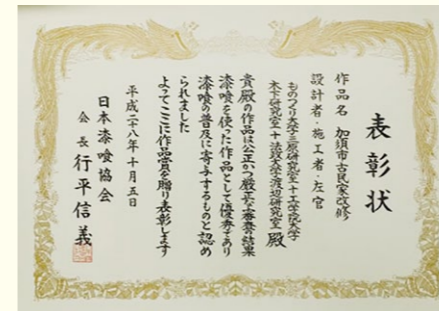 表彰状
作品名 加須市古民家改修
設計者・施工者・左官
ものつくり大学三原研究室+工学院大学
木下研究室+法政大学渡辺研究室 殿
貴殿の作品は公正かつ厳正な審査の結果
漆喰を使った作品として優秀であり
漆喰の普及に寄与するものと認め
られました
よってここに作品賞を贈り表彰します
平成二十八年十月五日
日本漆喰協会
会長 行平信義